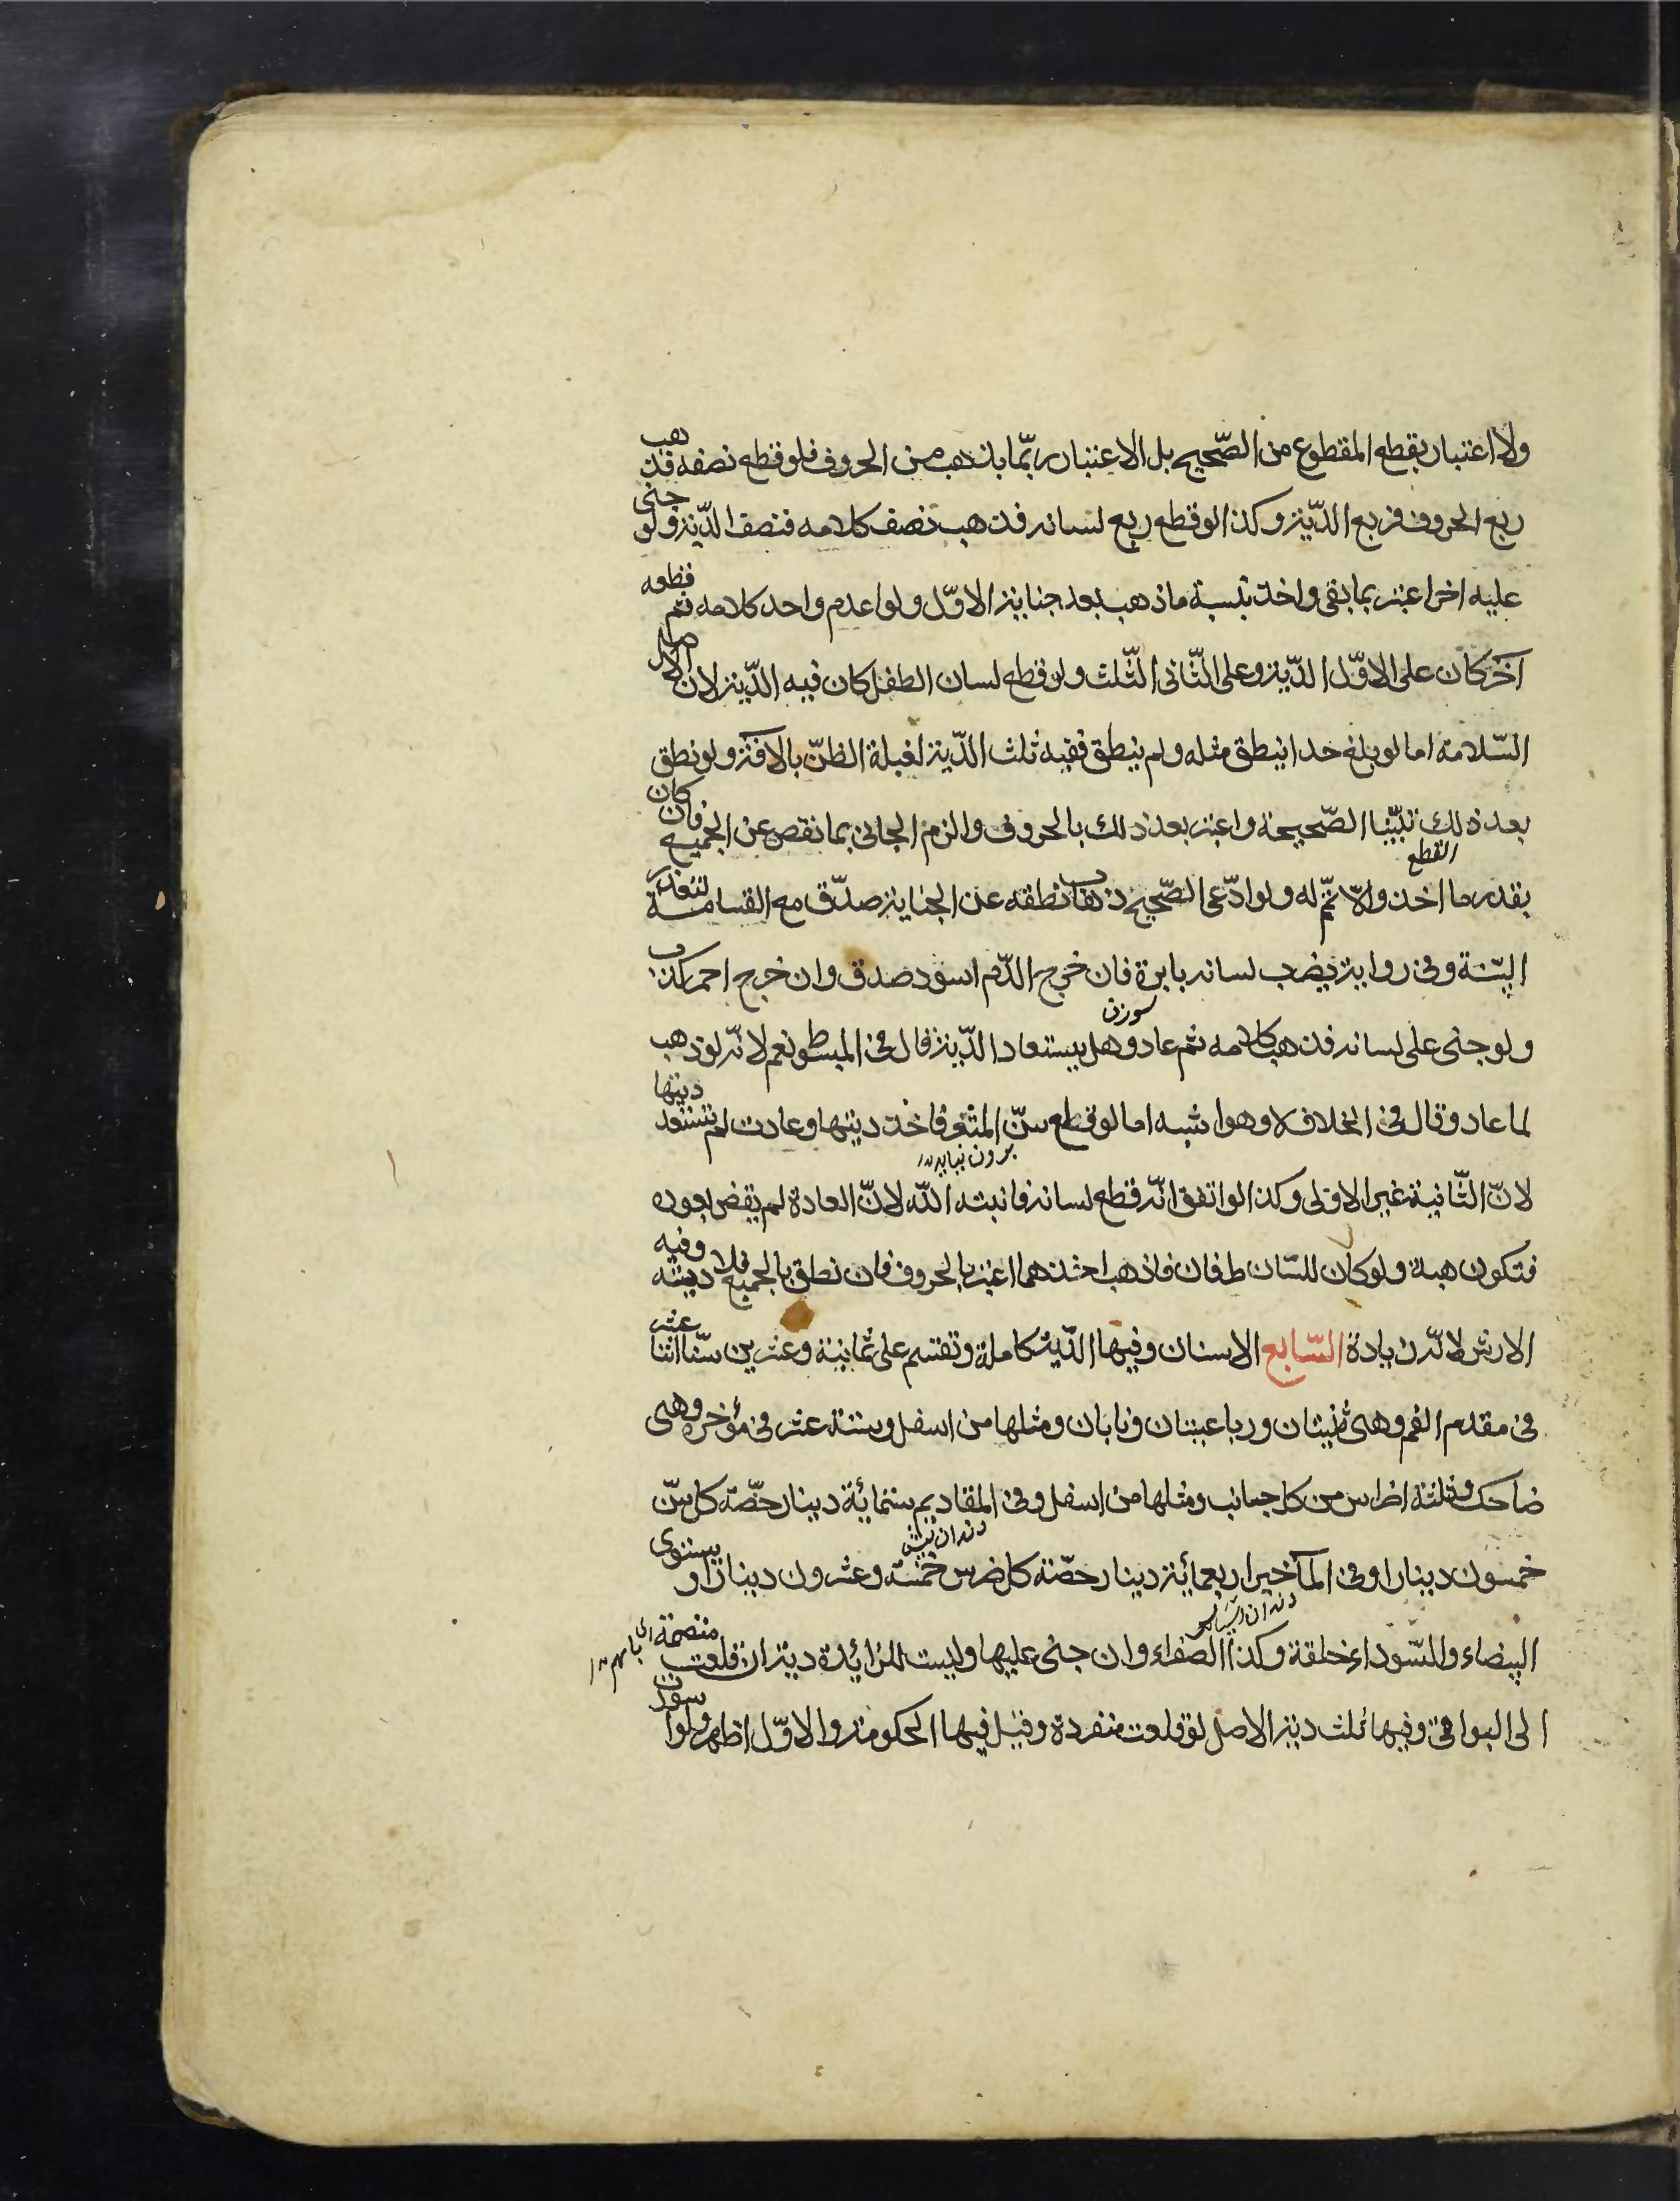 ولا اعتبار بقطع المقطوع من الصّحيح بل الاعتبار ربّما بذهب من الحروف فلو قطع نصفه فذهب
ربع الحروف فربع الدّية وكذا لو قطع ربع لسانه فذهب نصف كلامه فنصف الدّية ولو جنى
عليه اخر اعتبر بما بقى واخذ بنسبة ما ذهب بعد جناية الاوّل ولو اعدم واحد كلامه ثم قطعه
آخر كان على الاوّل الدّية وعلى الثّانى الثّلث ولو قطع لسان الطفل كان فيه الدّية لان الاصل
السّلامة اما لو بلغ حدا ينطق مثله ولم ينطق ففيه ثلث الدّية لغبلة الظنّ بالافة ولو نطق
بعد ذلك تبيّنا الصّحيحة واعتبر بعد ذلك بالحروف والزم الجانى بما نقص عن الجميع فان كان
بقدر ما اخذ والّا تمّ له ولو ادّعى الصّحيح ذهاب نطقه عن الجناية صدّق مع القسامة لتعذر
القطع
البيّنة وفى رواية يضرب لسانه بابرة فان خرج الدّم اسود صدق وان خرج احمر كذب
سوزن
ولو جنى على لسانه فذهب كلامه ثم عاد وهل يستعاد الدّية قال فى المبسوط نعم لانّه لو ذهب
لما عاد وقال فى الخلاف لا وهو اشبه اما لو قطع سنّ المثغر فاخذ ديتها وعادت لم تستعد ديتها
برون نيايد
لانّ الثّانية غير الاولى وكذا لو اتفق انّه قطع لسانه فانبته الله لانّ العادة لم يقض بعوده
فتكون هبة ولو كان للسّان طرفان فاذهب احدهما اعتبر بالحروف فان نطق بالجميع فلا دية وفيه
الارش لانّه زيادة السّابع الاسنان وفيها الدّية كاملة وتقسم على ثمانية وعشرين سنّا اثنا عشر
فى مقدم الفم وهى ثنيتان ورباعيتان ونابان ومثلها من اسفل وستة عشر فى مؤخره وهى
ضاحك وثلثة اضراس من كل جانب ومثلها من اسفل وفى المقاديم ستمائة دينار حصّة كل سنّ
دندان پيش
خمسون دينارا وفى المآخير اربعمائة دينار حصّة كل ضرس خمسة وعشرون دينارا ويستوى
البيضاء والسّوداء خلقة وكذا الصفراء وان جنى عليها وليست للزائدة دية ان قلعت منضمة
الى البواقى وفيها ثلث دية الاصل لو قلعت منفردة وقيل فيها الحكومة والاوّل اظهر ولو اسودت